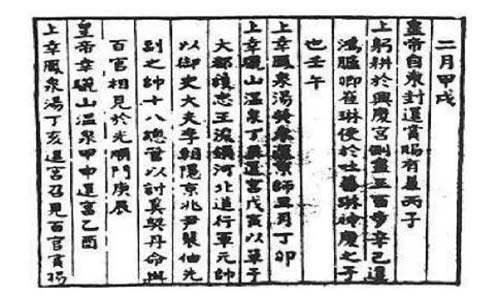 二月甲戌
皇帝自東封還賞賜有差丙子
上躬耕於興慶宮側盡三百步辛已遣
鴻臚卿崔琳使於吐蕃琳神慶之子
也壬午
上幸鳳泉湯癸未還京師丑月丁卯
上幸驪山溫泉丁還宮戊寅以單于
大都護忠王浚領河北道行軍元帥
以御史大夫李朝隱京兆尹裴伷先
副之帥十八總管以討奚契丹命與
百官相見於光順門庚辰
皇帝幸驪山溫泉甲申還宮乙酉
上幸鳳泉湯丁亥還宮召見百官賞賜